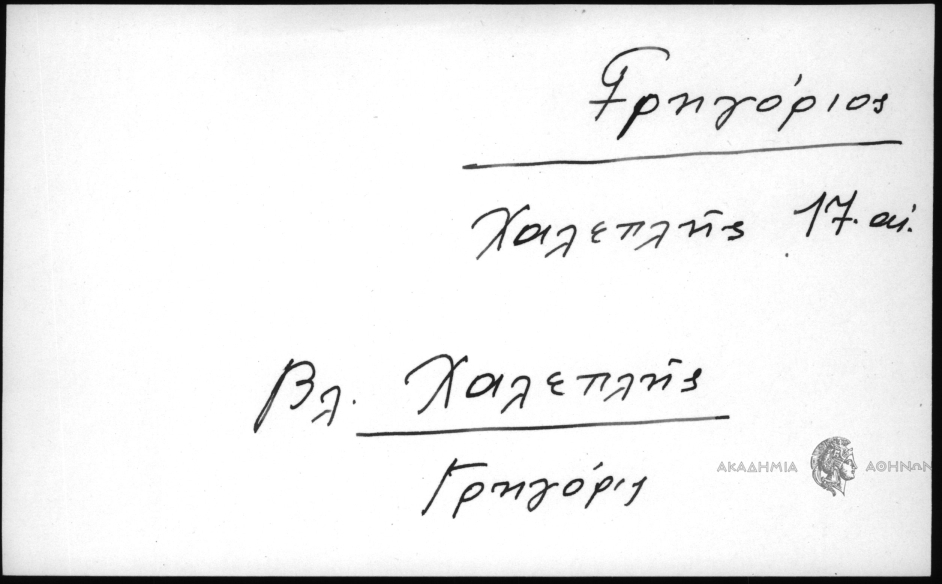 Γρηγόριος
Χαλεπλῆς 17. αἰ.
Βλ. Χαλεπλῆς
Γρηγόρης
ΑΚΑΔΗΜΙΑ ΑΘΗΝΩΝ